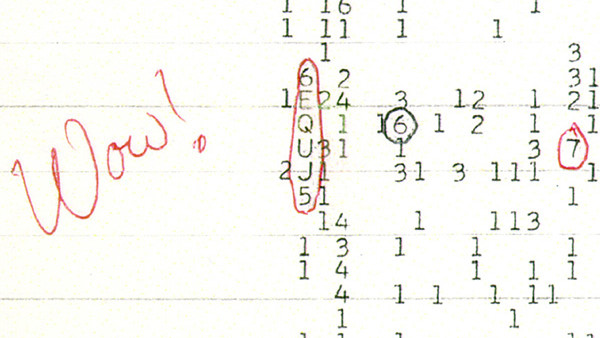 1 16 1 1
1 11 1 1
1 3
6 2 31
1 E 24 3 12 1 21
Q 1 1 6 1 2 1 1
Wow! U 31 1 3 7
2 J 1 31 3 111 1
5 1 1
14 1 113
1 3 1 1 1
1 4 1 1 1
4 1 1 1 11
1 1